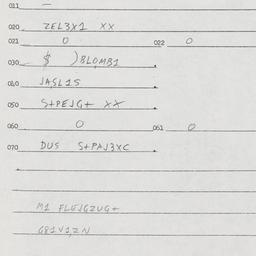 011 —
020 ZEL3X1 XX
021 0 022 0
030 $ )8LOMB1
040 JASL15
050 S+PEJG+ XX
060 0 061 0
070 DUS S+PAJ3XC
M1 FLEJGZUG+
G81V1,ZN